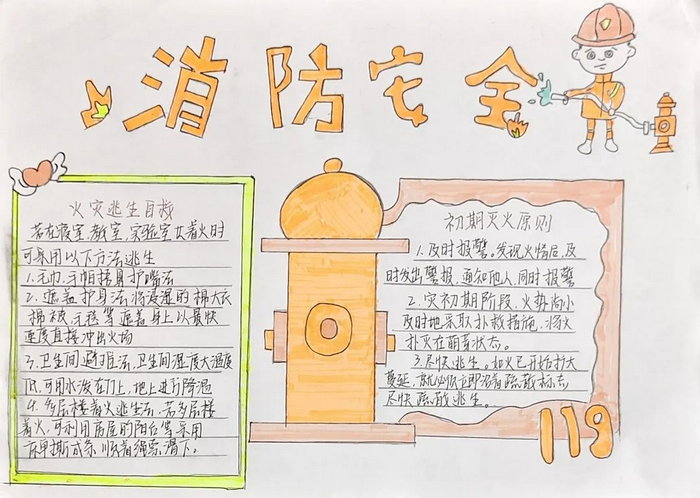 消防安全
火灾逃生自救
若在寝室,教室,实验室中着火时
可采用以下方法逃生
1.毛巾、手帕捂鼻护嘴法
2.遮盖护身法,将浸湿的棉大衣
棉被、毛毯等遮盖身上以最快
速度直接冲出火场
3.卫生间避难法,卫生间湿度大温度
低,可用水泼在门上、地上进行降温
4.多层楼着火逃生法,若多层楼
着火,可利用房屋的阳台等采用
床单撕成条,顺着绳索滑下。
初期灭火原则
1.及时报警。发现火情后,及
时发出警报,通知他人,同时报警
2.灾初期阶段,火势尚小
及时地采取扑救措施,将火
扑灭在萌芽状态。
3.尽快逃生。如火已开始扩大
蔓延,就必须立即沿着疏散标志
尽快疏散逃生。
119